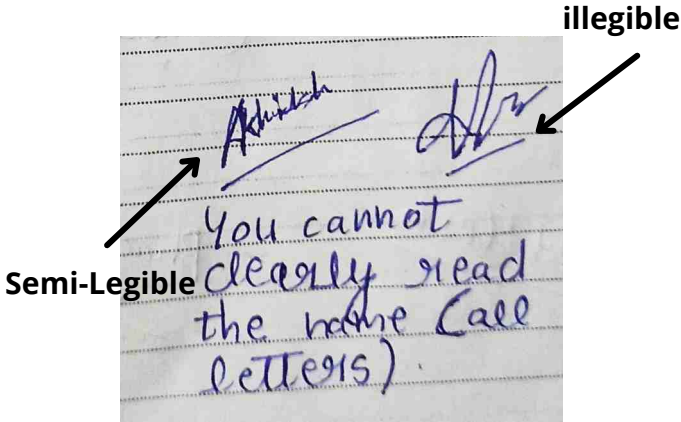 illegible
Semi-Legible
You cannot
clearly read
the name (all
letters).